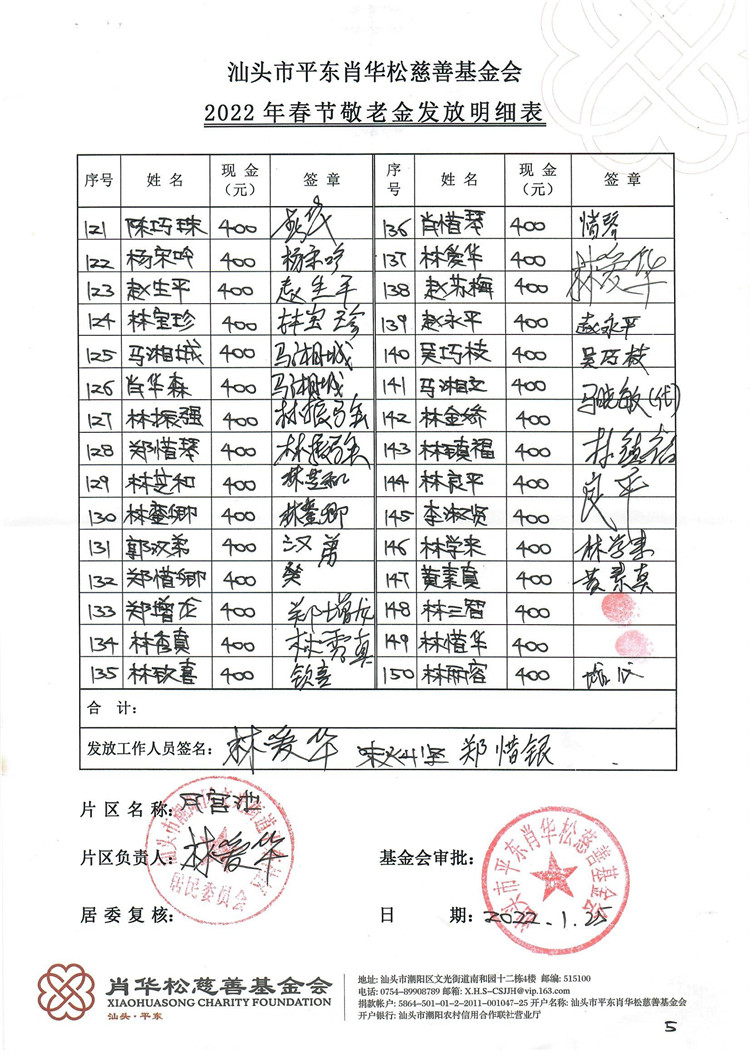 汕头市平东肖华松慈善基金会
2022 年春节敬老金发放明细表
序号 姓 名 现 金（元） 签 章 序号 姓 名 现 金（元） 签 章
121 陈巧珠 400 136 肖惜琴 400 惜琴
122 杨宋吟 400 杨宋吟 137 林爱华 400 林爱华
123 赵生平 400 赵生平 138 赵苏梅 400
124 林宝珍 400 林宝珍 139 赵永平 400 赵永平
125 马湘城 400 马湘城 140 吴巧枝 400 吴巧枝
126 肖华森 400 马湘城 141 马湘文 400 马晓敏(代)
127 林振强 400 林振强 142 林金娇 400
128 郑惜琴 400 林振强 143 林镇福 400 林镇福
129 林芝和 400 林芝和 144 林良平 400 良平
130 林銮卿 400 林銮卿 145 李淑贤 400
131 郭汉弟 400 汉弟 146 林学来 400 林学来
132 郑惜卿 400 147 黄素真 400 黄素真
133 郑增龙 400 郑增龙 148 林三智 400
134 林杏真 400 149 林惜华 400
135 林钦喜 400 钦喜 150 林丽容 400
合 计：
发放工作人员签名： 林爱华 郑惜银
片 区 名 称： 月宫池
片区负责人： 林爱华 基金会审批：
居 委 复 核： 日 期： 2022.1.25
居民委员会
汕头市平东肖华松慈善基金会
肖华松慈善基金会
XIAOHUASONG CHARITY FOUNDATION
汕头·平东
地址: 汕头市潮阳区文光街道南和园十二栋4楼 邮编: 515100
电话: 0754-89908789 邮箱: X.H.S-CSJJH@vip.163.com
捐款帐户: 5864-501-01-2-2011-001047-25 开户名称: 汕头市平东肖华松慈善基金会
开户银行: 汕头市潮阳农村信用合作联社营业厅
5